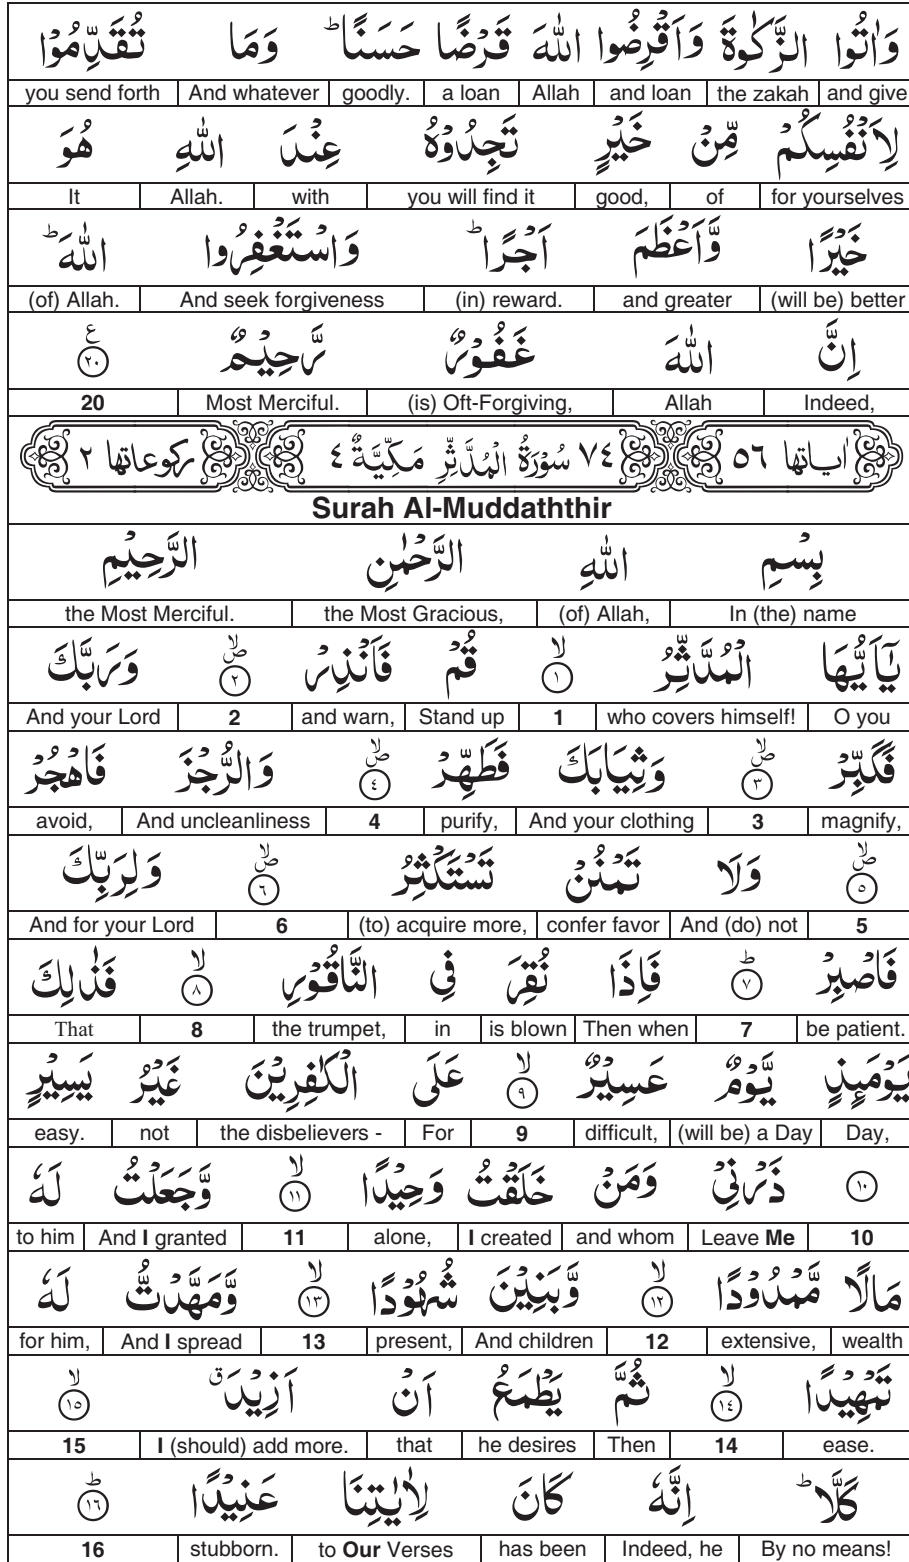 وَاٰتُوا الزَّكٰوةَ وَاَقْرِضُوا اللّٰهَ قَرْضًا حَسَنًا ؕ وَمَا تُقَدِّمُوْا
and give the zakah and loan Allah a loan goodly. And whatever you send forth
لِاَنْفُسِكُمْ مِّنْ خَيْرٍ تَجِدُوْهُ عِنْدَ اللّٰهِ هُوَ
for yourselves of good, you will find it with Allah. It
خَيْرًا وَّاَعْظَمَ اَجْرًا ؕ وَاسْتَغْفِرُوا اللّٰهَ ؕ
(will be) better and greater (in) reward. And seek forgiveness (of) Allah.
اِنَّ اللّٰهَ غَفُوْرٌ رَّحِيْمٌ ع ٢٠
Indeed, Allah (is) Oft-Forgiving, Most Merciful. 20
اٰياتها ٥٦ ٧٤ سُوْرَةُ الْمُدَّثِّرِ مَكِّيَّةٌ ٤ ركوعاتها ٢
Surah Al-Muddaththir
بِسْمِ اللّٰهِ الرَّحْمٰنِ الرَّحِيْمِ
In (the) name (of) Allah, the Most Gracious, the Most Merciful.
يٰٓاَيُّهَا الْمُدَّثِّرُ ۙ ١ قُمْ فَاَنْذِرْ ۪ۙ ٢ وَرَبَّكَ
O you who covers himself! 1 Stand up and warn, 2 And your Lord
فَكَبِّرْ ۪ۙ ٣ وَثِيَابَكَ فَطَهِّرْ ۪ۙ ٤ وَالرُّجْزَ فَاهْجُرْ
magnify, 3 And your clothing purify, 4 And uncleanliness avoid,
۪ۙ ٥ وَلَا تَمْنُنْ تَسْتَكْثِرُ ۪ۙ ٦ وَلِرَبِّكَ
5 And (do) not confer favor (to) acquire more, 6 And for your Lord
فَاصْبِرْ ؕ ٧ فَاِذَا نُقِرَ فِي النَّاقُوْرِ ۙ ٨ فَذٰلِكَ
be patient. 7 Then when is blown in the trumpet, 8 That
يَوْمَئِذٍ يَّوْمٌ عَسِيْرٌ ۙ ٩ عَلَى الْكٰفِرِيْنَ غَيْرُ يَسِيْرٍ
Day, (will be) a Day difficult, 9 For the disbelievers - not easy.
١٠ ذَرْنِيْ وَمَنْ خَلَقْتُ وَحِيْدًا ۙ ١١ وَّجَعَلْتُ لَهٗ
10 Leave Me and whom I created alone, 11 And I granted to him
مَالًا مَّمْدُوْدًا ۙ ١٢ وَّبَنِيْنَ شُهُوْدًا ۙ ١٣ وَّمَهَّدْتُّ لَهٗ
wealth extensive, 12 And children present, 13 And I spread for him,
تَمْهِيْدًا ۙ ١٤ ثُمَّ يَطْمَعُ اَنْ اَزِيْدَ ۗۙ ١٥
ease. 14 Then he desires that I (should) add more. 15
كَلَّا ؕ اِنَّهٗ كَانَ لِاٰيٰتِنَا عَنِيْدًا ؕ ١٦
By no means! Indeed, he has been to Our Verses stubborn. 16